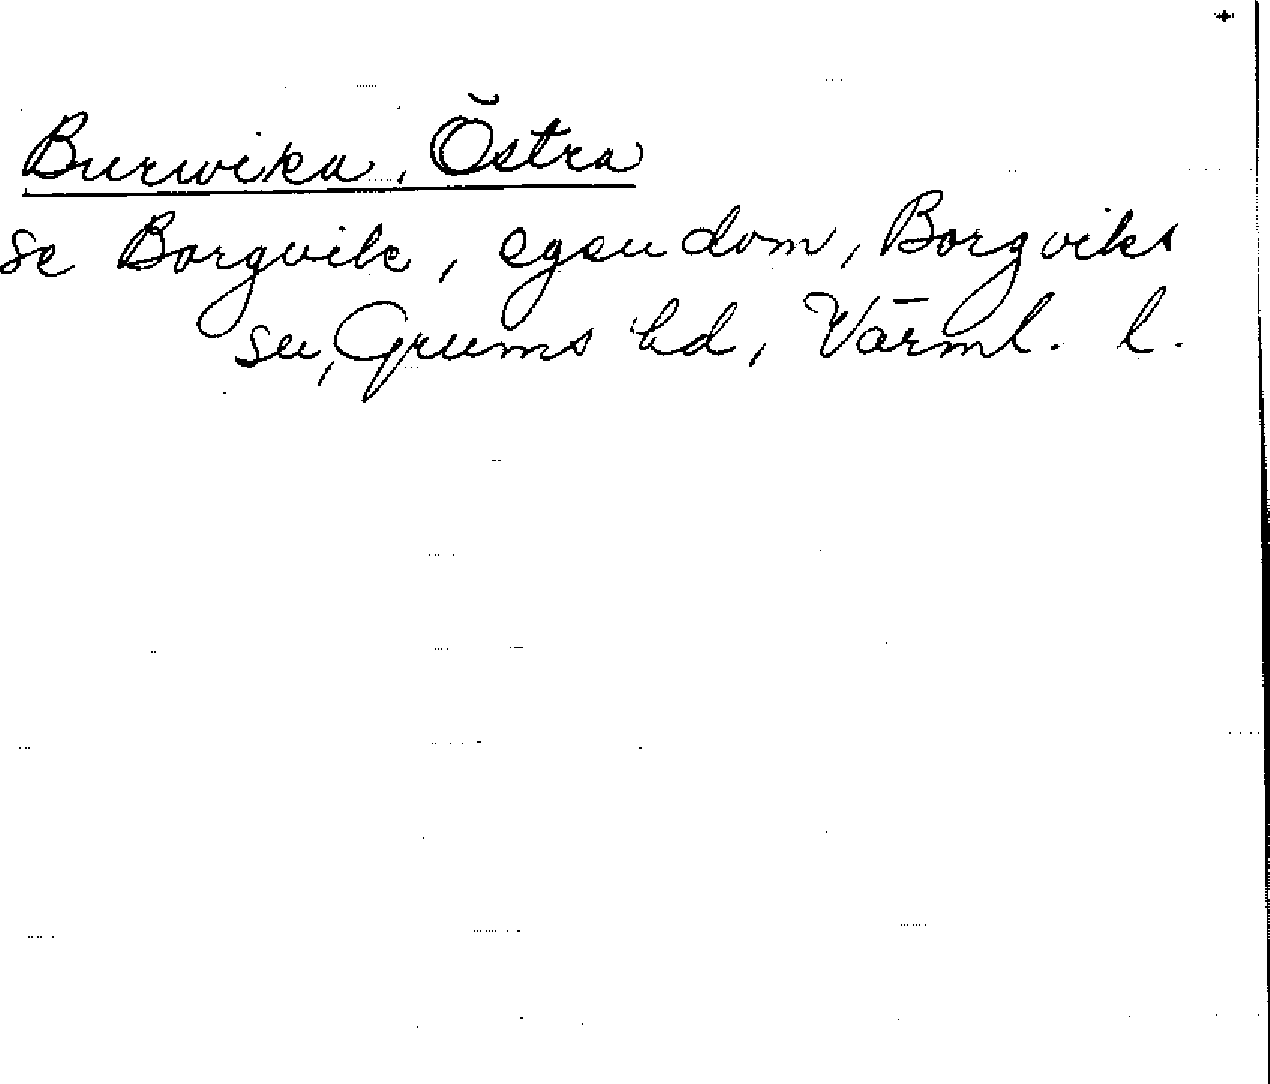 Burwika, Östra
se Borgvik, egendom, Borgviks
sn, Grums hd, Värml. l.